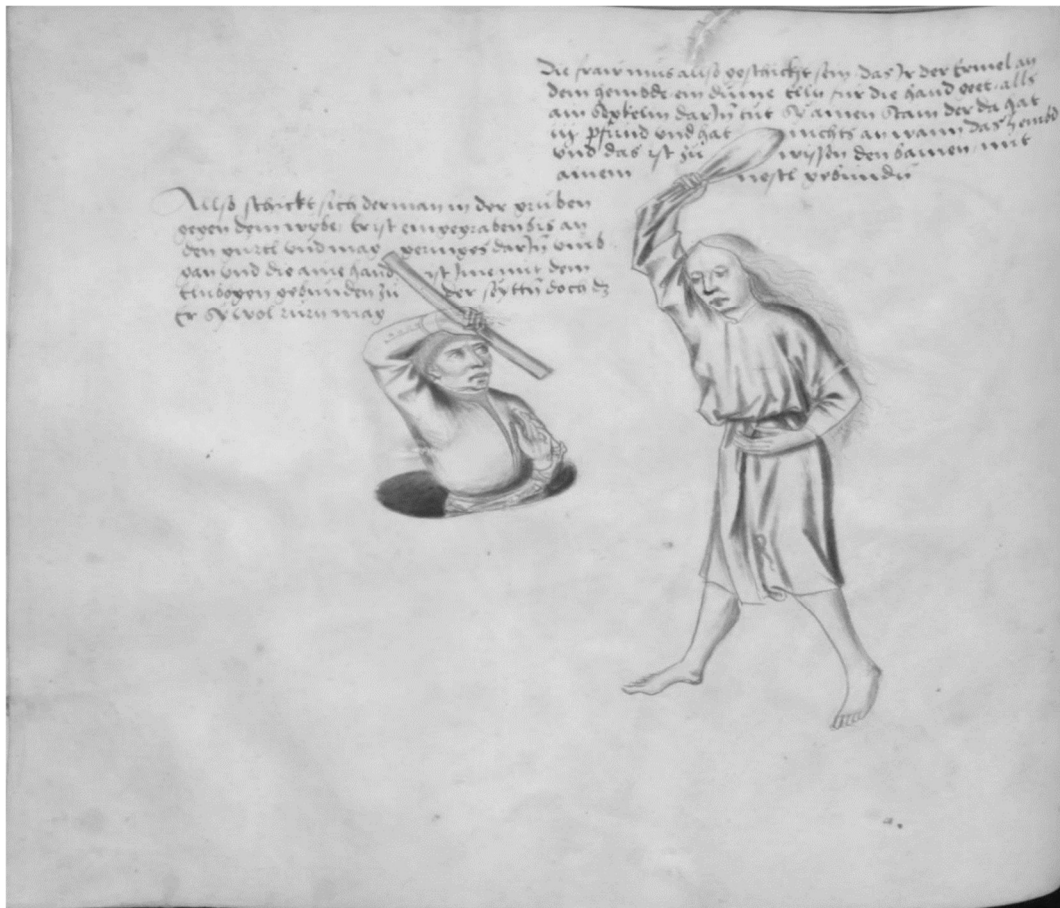 Die fraw mus also geschickt sein das Ir der Ermel an
dem hembde ein dume elln fur die hand gee alls
ain Seckelin dar Jn tut Sy ainen Stain der da hat
iij pfund vnd hat nichts an wann das hembd
vnd das ist zu wissen den bainen mit
ainem nestl gebunden
Allso schickt sich der man in der gruben
gegen dem wybe Er ist ein gegraben bis an
den gurtl vnd mag geringes dar Jn vmb
gan vnd die aine hand ist Jme mit dem
Elnbogen gebunden zu der sytten doch dz
Er Sy wol rurn mag